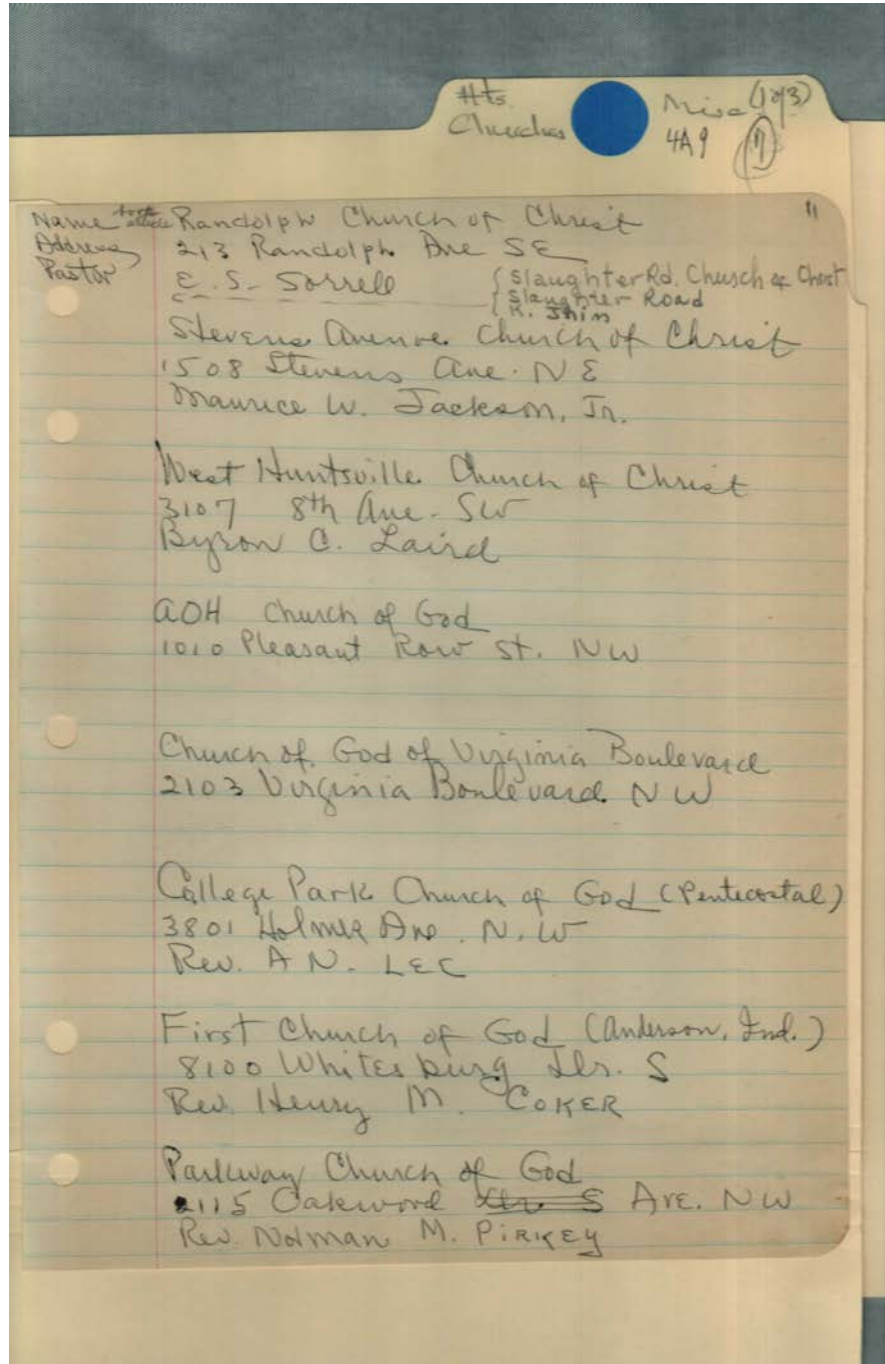 Hts.
Churches
Misc (1 of 3)
4A9
11
Name
Address
Pastor
Randolph Church of Christ
213 Randolph Ave SE
E. S. Sorrell
Slaughter Rd. Church of Christ
Slaughter Road
K. Shin
Stevens Avenue Church of Christ
1508 Stevens Ave. NE
Maurice W. Jackson, Jr.
West Huntsville Church of Christ
3107 8th Ave. SW
Byron C. Laird
AOH Church of God
1010 Pleasant Row St. NW
Church of God of Virginia Boulevard
2103 Virginia Boulevard NW
College Park Church of God (Pentecostal)
3801 Holmes Ave. N.W
Rev. A N. LEE
First Church of God (Anderson, Ind.)
8100 Whitesburg Dr. S
Rev. Henry M. COKER
Parkway Church of God
2115 Oakwood Dr. S AVE. NW
Rev. Norman M. PIRKEY